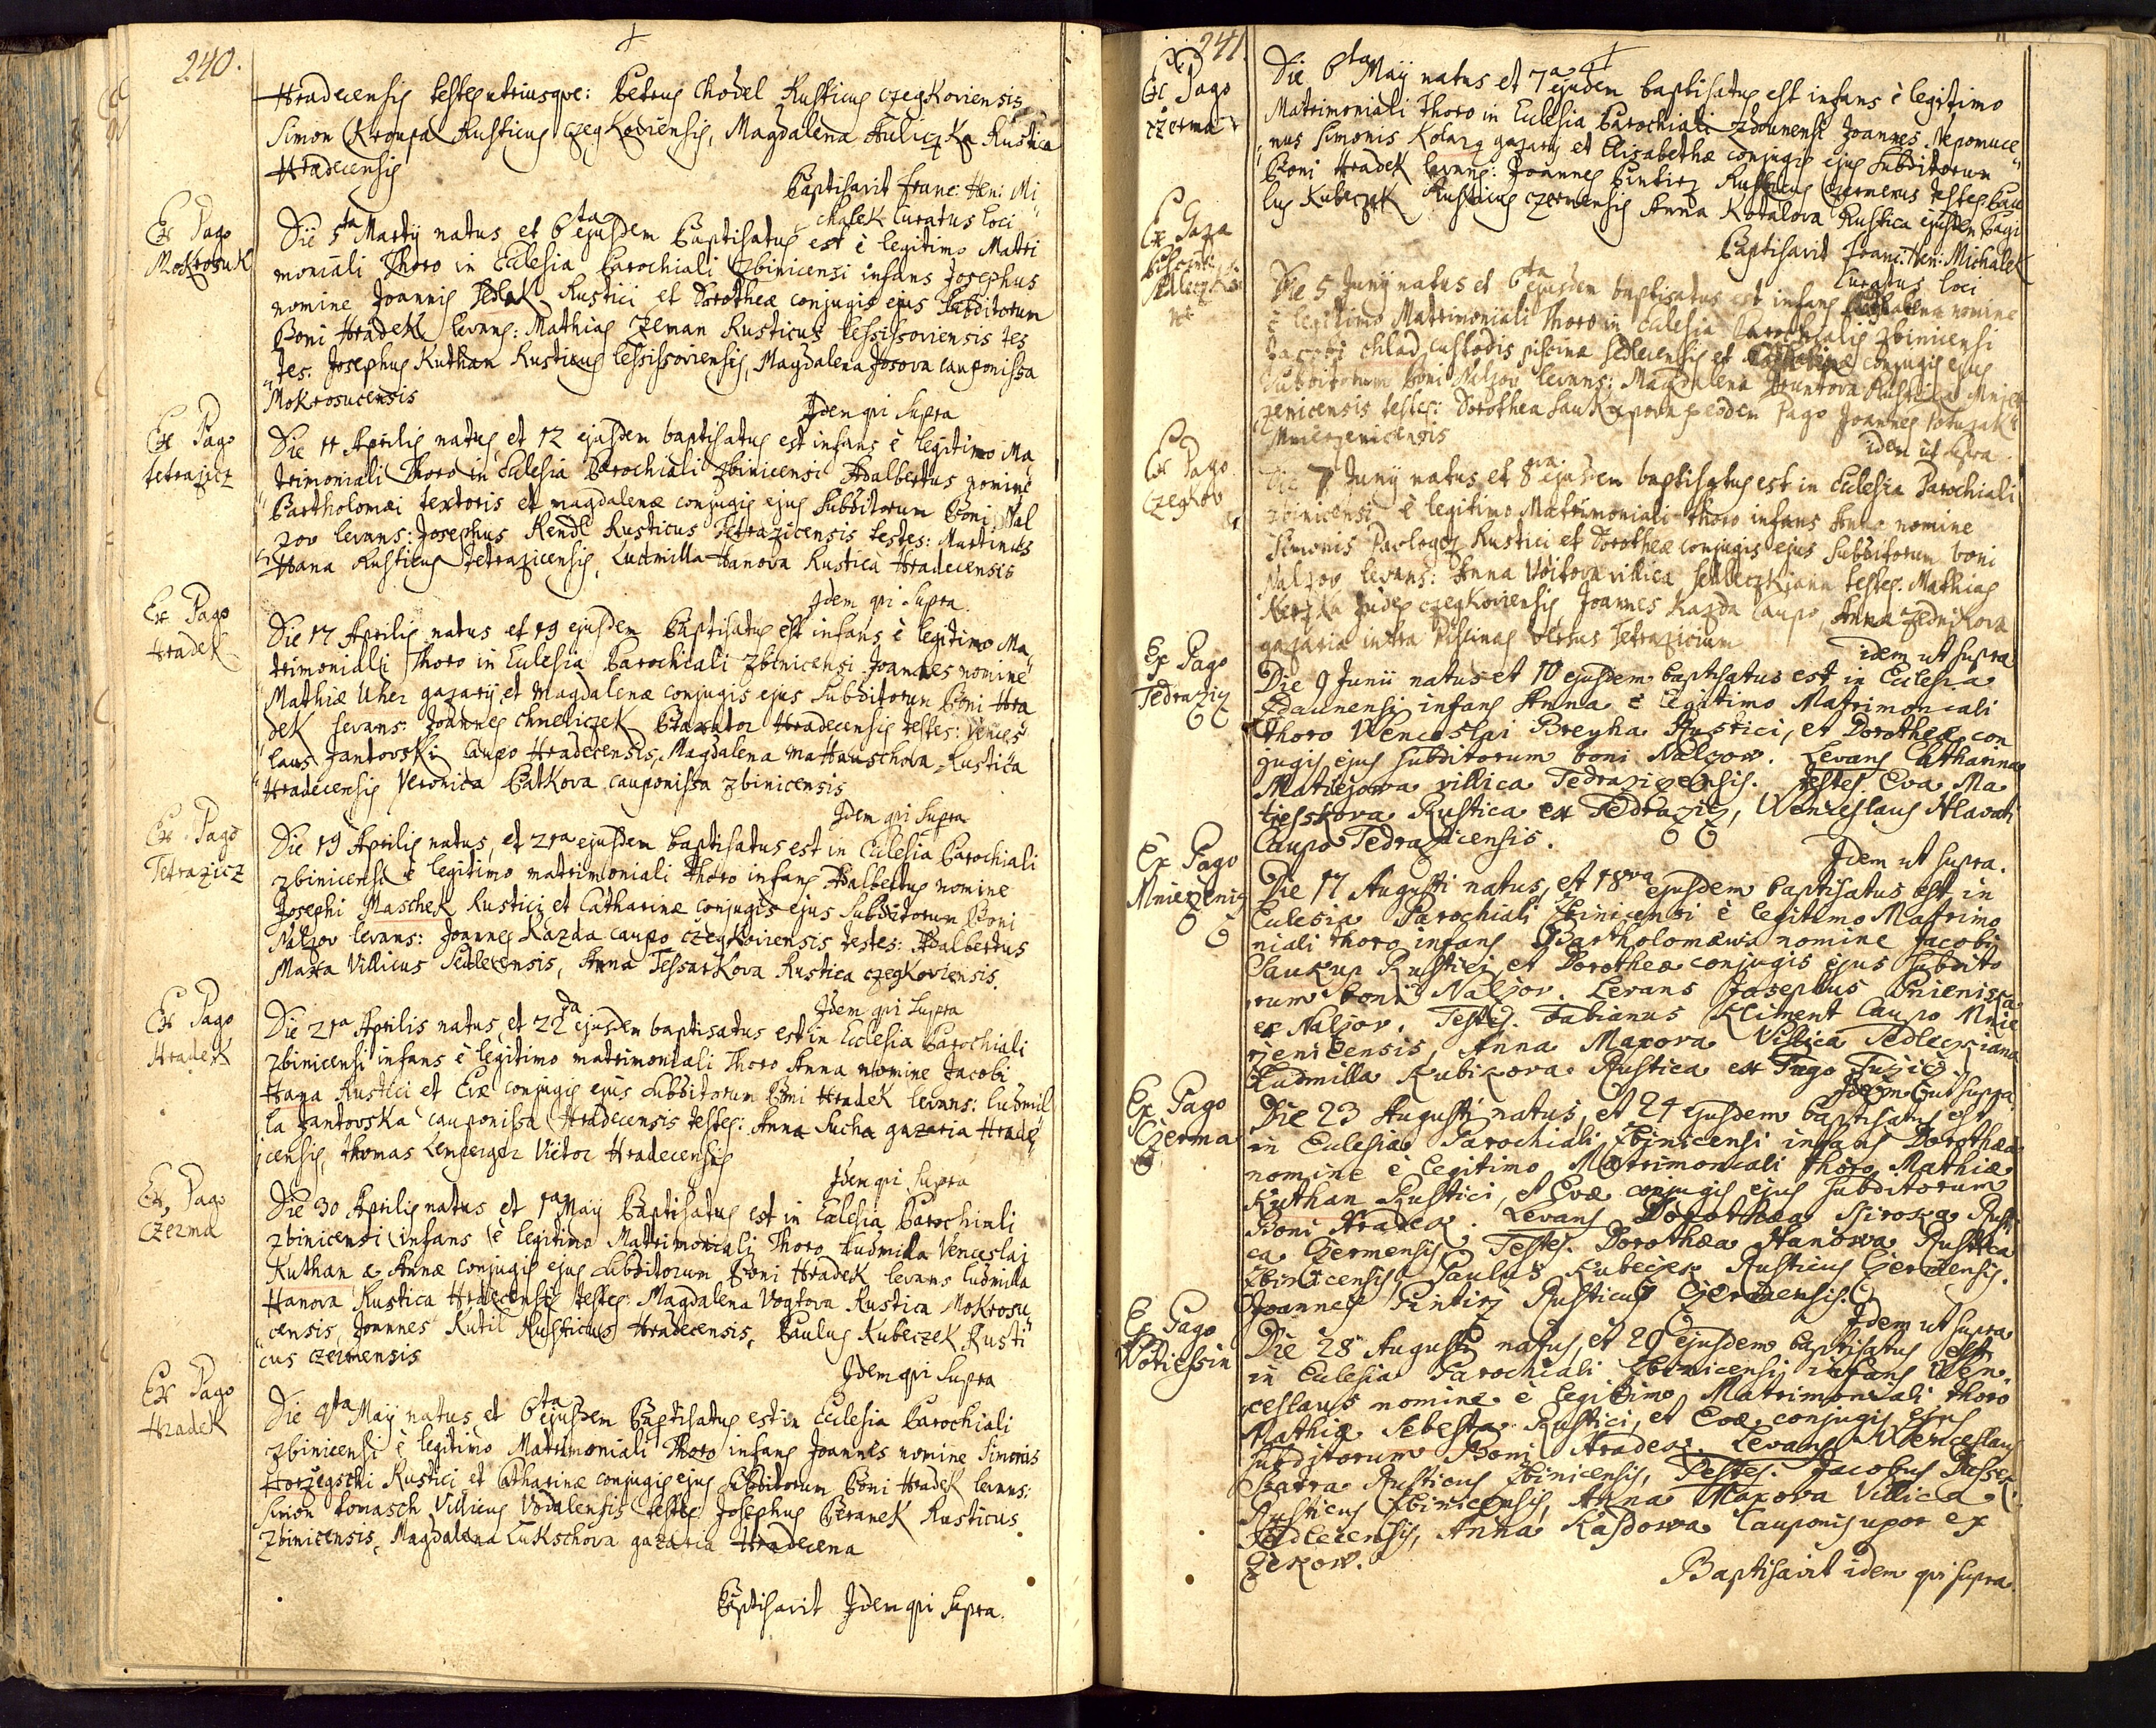 240.
Hradecensis testes utriusqve: Petrus Chodel Rusticus czegKoviensis
Simon Kroupa Rusticus czegKoviensis, Magdalena HuliczKa Rustica
Hradecensis
Baptisavit Franc: Hen: Mi
chaleK Curatus loci
Ex Pago
MoKrosuK
Die 5ta Martÿ natus et 6ta ejusdem Baptisatus est è legitimo Matri
moniali Thoro in Eclesia Parochiali Zbinicensi infans Josephus
nomine Joannis SedlaK Rustici et Dorotheæ conjugis ejus Subditorum
Boni HradeK levans: Mathias Zeman Rusticus tessissoviensis tes
tes: Josephus Kuthan Rusticus tessissoviensis, Magdalena Josova cauponissa
MoKrosucensis
Idem qui Supra
Ex Pago
tetrazicz
Die 11 Aprilis natus et 12 ejusdem baptisatus est infans è legitimo Ma
trimoniali Thoro in Eclesia Parochiali Zbinicensi Adalbertus nomine
Bartholomæi textoris et magdalenæ conjugis ejus Subditorum Boni Nal
zov levans: Josephus Rendl Rusticus Tetrazicensis testes: Martinus
Hana Rusticus tetrazicensis, Ludmilla Hanova Rustica Hradecensis
Idem qui Supra
Ex Pago
HradeK
Die 17 Aprilis natus et 19 ejusdem Baptisatus est infans è legitimo Ma
trimoniali Thoro in Eclesia Parochiali Zbinicensi Joannes nomine
Mathiæ Uher gazarÿ et Magdalenæ conjugis ejus Subditorum Boni Hra
deK levans: Joannes ChmeliczeK Braxator Hradecensis testes: Vences
laus JandovsKi Caupo Hradecensis, Magdalena Mathauschova Rustica
Hradecensis Veronica PatKova cauponissa Zbinicensis
Idem qui Supra
Ex Pago
Tetrazicz
Die 19 Aprilis natus, et 21ma ejusdem baptisatus est in Eclesia Parochiali
Zbinicensi è legitimo matrimoniali Thoro infans Adalbertus nomine
Josephi MascheK Rustici et Catharinæ conjugis ejus Subditorum Boni
Nalzov levans: Joannes Kazda caupo czegKoviensis testes: Adalbertus
Maxa Villicus Sedlecensis, Anna TessarKova Rustica czegKoviensis.
Idem qui Supra
Ex Pago
HradeK
Die 21ma Aprilis natus, et 22da ejusdem baptisatus est in Eclesia Parochiali
Zbinicensi infans è legitimo matrimoniali Thoro Anna nomine Jacobi
Hana Rustici et Evæ conjugis ejus Subditorum Boni HradeK levans: Ludmil
la JandovsKa cauponissa Hradecensis testes: Anna Sucha gazaria Hrade
censis, Thomas Lemperger Victor Hradecensis
Idem qui Supra
Ex Pago
Czerma
Die 30 Aprilis natus et 1ma Maÿ Baptisatus est in Eclesia Parochiali
Zbinicensi infans è legitimo Matrimoniali Thoro Ludmilla Venceslai
Kuthan & Annæ conjugis ejus Subditorum Boni HradeK levans Ludmilla
Hanova Rustica Hradecensis testes: Magdalena Vogtova Rustica MoKrosu
censis, Joannes Kutil Rusticus Hradecensis, Paulus KubeczeK Rusti
cus czermensis
Idem qui Supra
Ex Pago
HradeK
Die 4ta Maÿ natus et 6ta ejusdem Baptisatus est in Eclesia Parochiali
Zbinicensi è legitimo Matrimoniali Thoro infans Joannes nomine Simonis
Horzegschi Rustici et Catharinæ conjugis ejus Subditorum Boni HradeK levans:
Simon tomasch Villicus Vodalensis testes Josephus BeraneK Rusticus
Zbinicensis, Magdalena LuKschova gazaria Hradecena
Baptisavit Idem qui Supra.
241.
Ex Pago
czerma
Die 6ta Maÿ natus et 7ma ejusdem baptisatus est infans è legitimo
Matrimoniali Thoro in Eclesia Parochiali Zdounensi Joannes Nepomuce
nus Simonis Kolarz gazarÿ et Elisabethæ conjugis ejus Subditorum
Boni HradeK levans: Joannes Pintirz Rusticus Czermensis testes: Pau
lus KubeczeK Rusticus czermensis Anna Kotalova Rustica ejusdem Pagi
Baptisavit Franc: Hen: MichaleK
Curatus loci
Ex Gaza
Die 5 Junÿ natus et 6ta ejusdem baptisatus est infans nomine
è legitimo Matrimoniali Thoro in Eclesia Parochialis Zbinicensi
Jacobi chlad custodis piscinæ Sedlecensis et conjugis ejus
Subditorum Boni Nalzov levans: Magdalena Rustica Mnie
zenicensis testes: Dorothea SauKupova eodem Pago Joannes
Mniezenicensis
idem ut supra
Ex Pago
CzegKov
Die 7 Junÿ natus et 8va ejusdem baptisatus est in Eclesia Parochiali
Zbinicensi è legitimo Matrimoniali thoro infans Anna nomine
Simonis Pavlogez Rustici et Dorotheæ conjugis ejus Subditorum boni
Nalzov levans: Anna Voitova villica SedleczKiana testes: Mathias
Judex czegKoviensis Joannes Kazda Caupo, Anna ZedniKova
gazaria intra Piscinas versus Tetrazicium
idem ut supra
Ex Pago
Tedrazicz
Die 9 Junii natus et 10 ejusdem baptisatus est in Eclesia
Zdaunensi infans Anna è legitimo Matrimoniali
thoro Wenceslai Breyha Rustici, et Dorotheæ con
jugis ejus subditorum boni Nalzow. Levans Catharina
Matiejowa villica Tedrazicensis. testes Eva Ma
tiesskova Rustica ex Tedrazicz, Wenceslaus Hlavati
Caupo Tedrazicensis.
Idem ut supra.
Ex Pago
Mniezenicz
Die 17 Augusti natus, et 18va ejusdem baptisatus est in
Eclesia Parochiali Zbinicensi è legitimo Matrimo
niali thoro infans Bartholomæus nomine Jacobi
Saukup Rustici et Dorotheæ conjugis ejus subdito
rum boni Nalzov. Levans Josephus
ex Nalzov. Testes. Fabianus Kliment Caupo Mnie
zenicensis, Anna Maxova Villica Sedleckiana
Ludmilla Kubikova Rustica ex Pago Tuzicz.
Idem ut supra
Ex Pago
Czerma
Die 23 Augusti natus, et 24 ejusdem baptisatus est
in Eclesia Parochiali Zbinicensi infans Dorothæa
nomine è legitimo Matrimoniali thoro Mathiæ
Kuthan Rustici, et Evæ conjugis ejus subditorum
Boni Hradek. Levans Dorothæa Siroka Rusti
ca Czermensis Testes. Dorothæa Hanowa Rustica
Zbinicensis, Paulus Kubeczek Rusticus Czermensis.
Joannes Pintirz Rusticus Czermensis.
Idem ut supra
Ex Pago
Wotiessin
Die 28 Augusti natus, et 29 ejusdem baptisatus est
in Eclesia Parochiali Zbinicensi infans Wen
ceslaus nomine è legitimo Matrimoniali thoro
Mathiæ Sebesta Rustici, et Evæ conjugis ejus
subditorum Boni Hradek. Levans Wenceslaus
Skatra Rusticus Zbinicensis, Testes. Jacobus
Rusticus Zbinicensis, Anna Maxova Villica
Sedlecensis, Anna Kasdowa Cauponis uxor ex
Czekow.
Baptisavit idem qui supra.